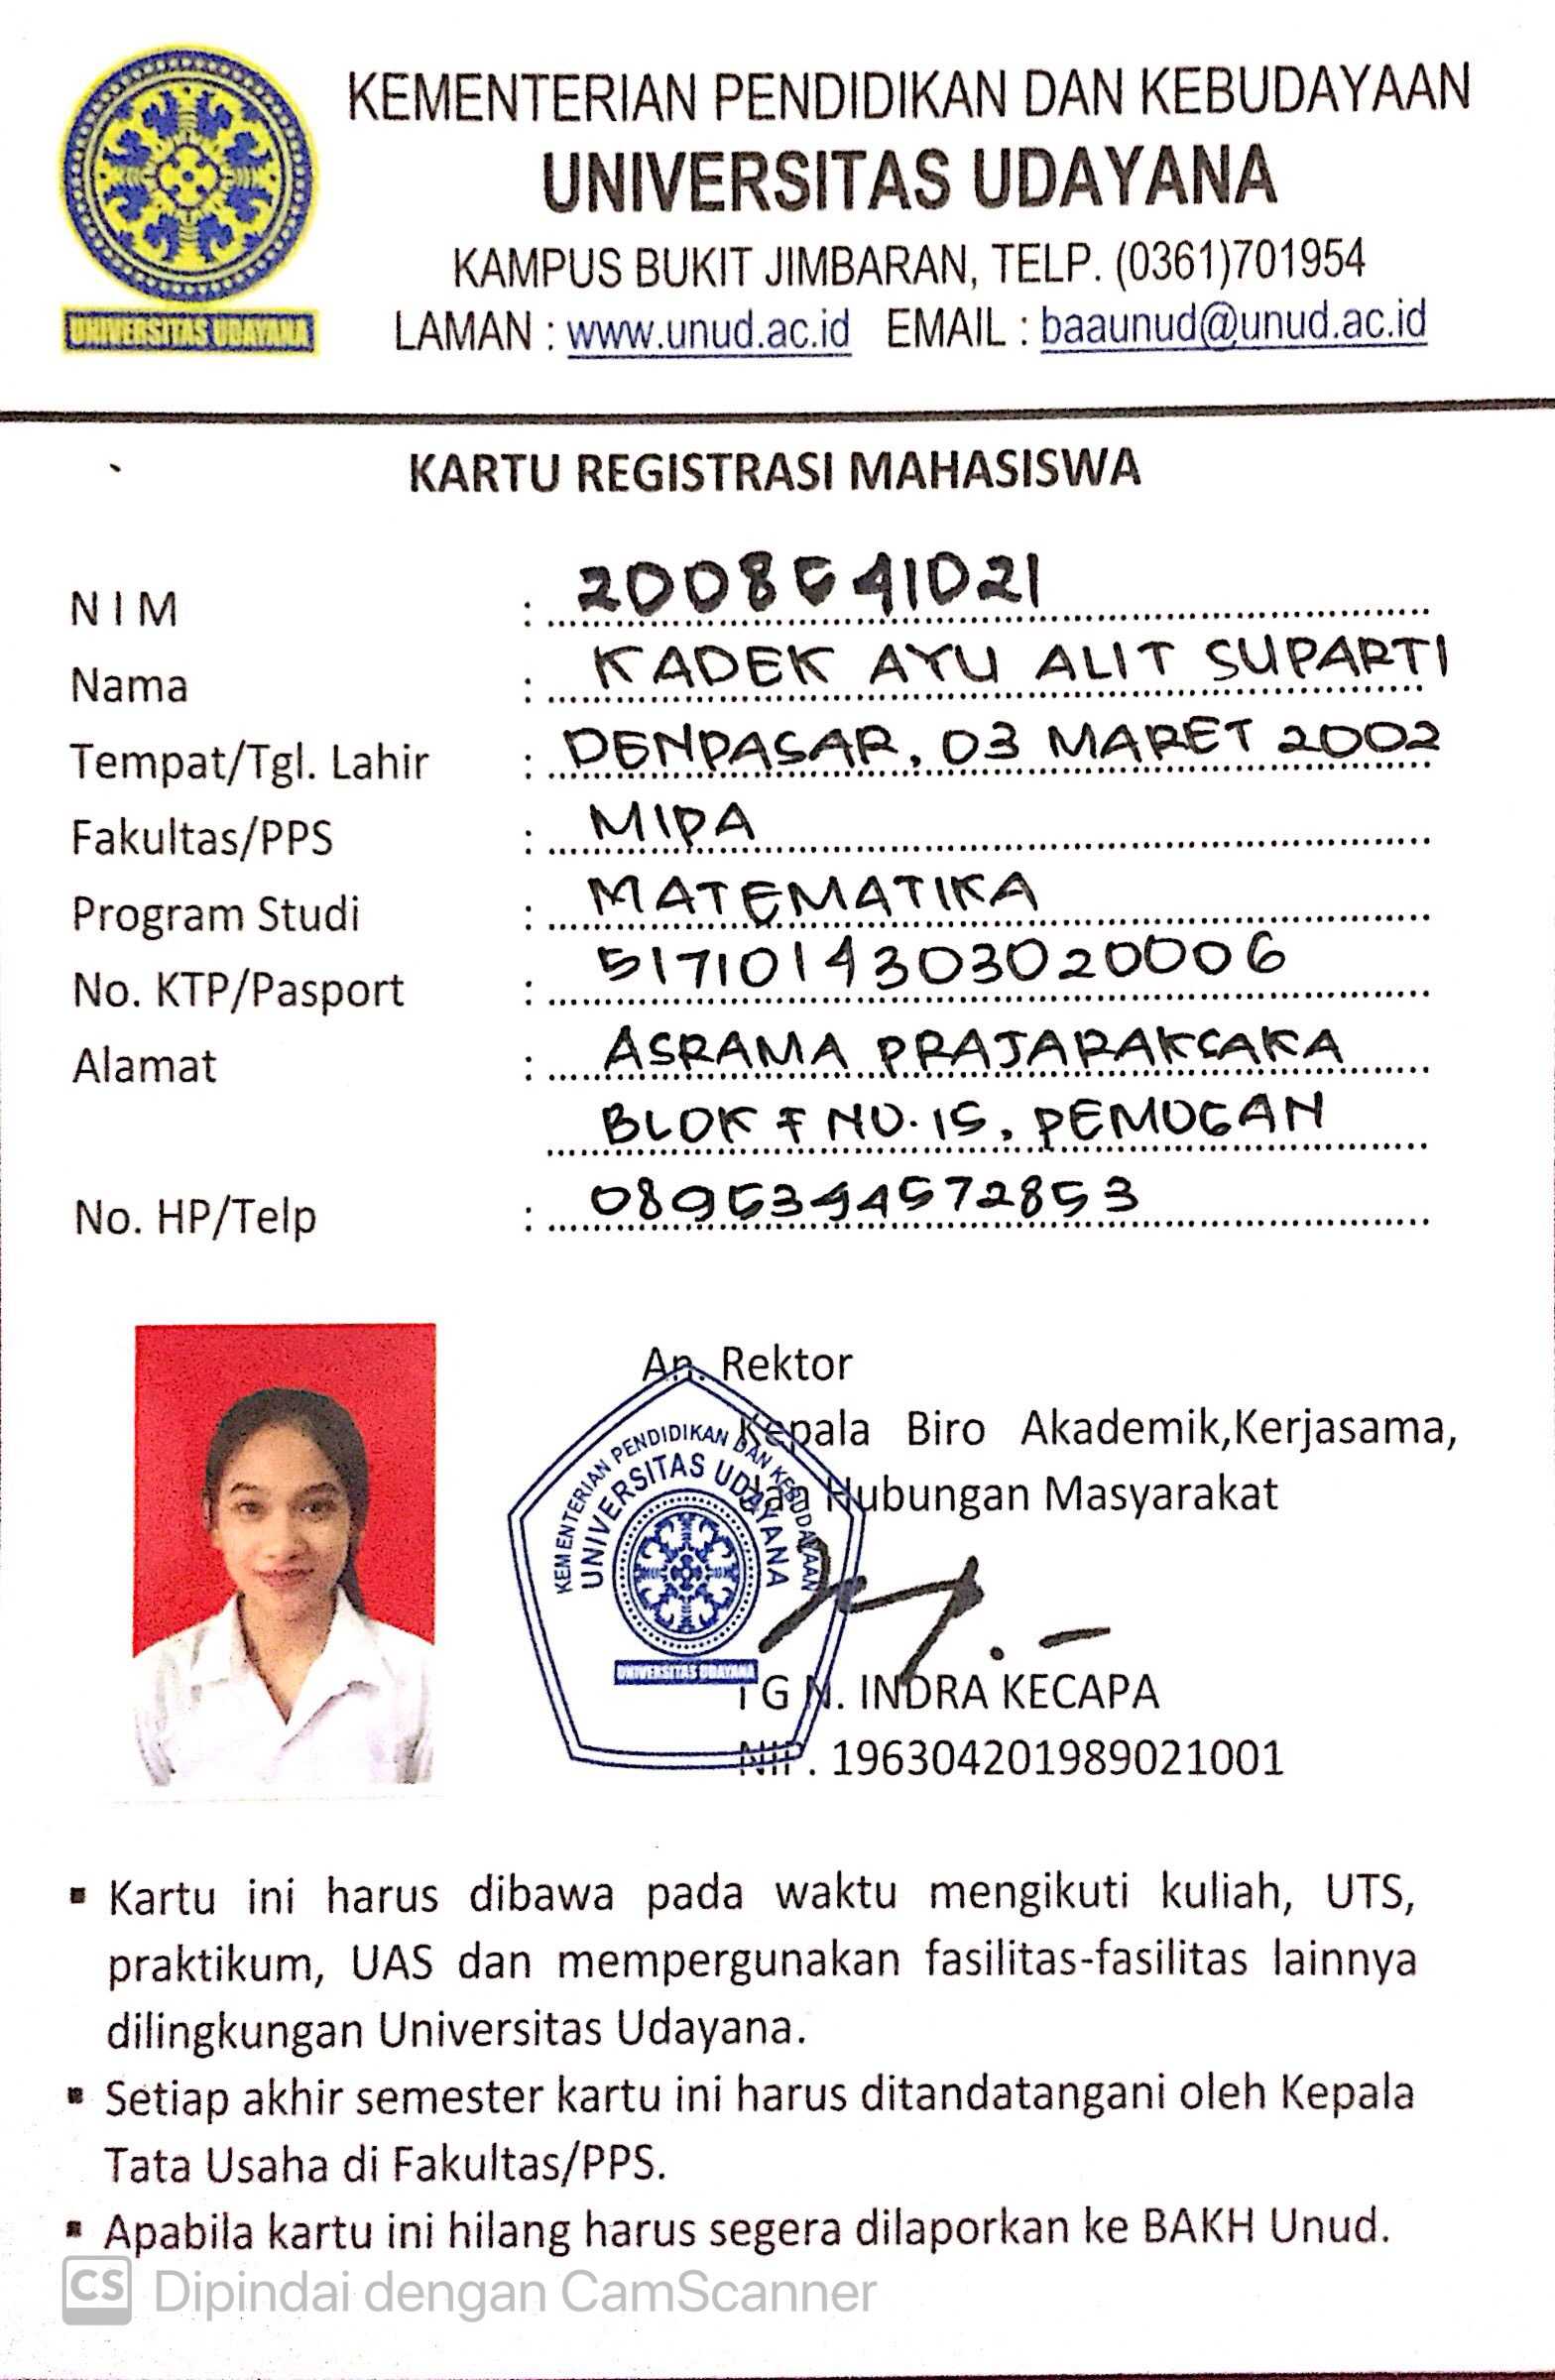 KEMENTERIAN PENDIDIKAN DAN KEBUDAYAAN
UNIVERSITAS UDAYANA
KAMPUS BUKIT JIMBARAN, TELP. (0361)701954
LAMAN : www.unud.ac.id EMAIL : baaunud@unud.ac.id
UNIVERSITAS UDAYANA
KARTU REGISTRASI MAHASISWA
NIM : 2008541021
Nama : KADEK AYU ALIT SUPARTI
Tempat/Tgl. Lahir : DENPASAR, 03 MARET 2002
Fakultas/PPS : MIPA
Program Studi : MATEMATIKA
No. KTP/Pasport : 5171014303020006
Alamat : ASRAMA PRAJARAKSAKA
BLOK F NO. 15, PEMOGAN
No. HP/Telp : 0895394572853
An. Rektor
Kepala Biro Akademik,Kerjasama,
dan Hubungan Masyarakat
KEMENTERIAN PENDIDIKAN DAN KEBUDAYAAN
UNIVERSITAS UDAYANA
UNIVERSITAS UDAYANA
I G N. INDRA KECAPA
NIP. 196304201989021001
▪ Kartu ini harus dibawa pada waktu mengikuti kuliah, UTS,
praktikum, UAS dan mempergunakan fasilitas-fasilitas lainnya
dilingkungan Universitas Udayana.
▪ Setiap akhir semester kartu ini harus ditandatangani oleh Kepala
Tata Usaha di Fakultas/PPS.
▪ Apabila kartu ini hilang harus segera dilaporkan ke BAKH Unud.
CS Dipindai dengan CamScanner